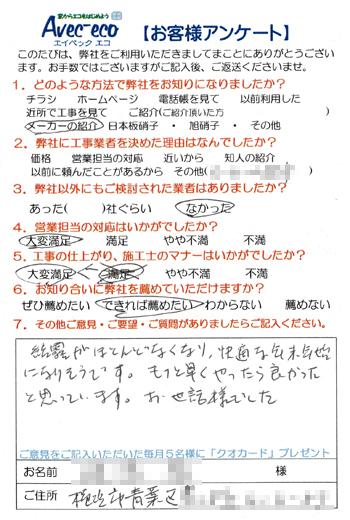 家からエコをはじめよう
AVEC-ECO
エイベック エコ
【お客様アンケート】
このたびは、弊社をご利用いただきましてまことにありがとうござい
ます。お手数ではございますがご記入後、ご返送くださいませ。
1．どのような方法で弊社をお知りになりましたか？
チラシ ホームページ 電話帳を見て 以前利用した
近所で工事を見て ご紹介(ご紹介頂いた方 )
メーカーの紹介 日本板硝子 ・ 旭硝子 ・ その他
2．弊社に工事業者を決めた理由はなんでしたか？
価格 営業担当の対応 近いから 知人の紹介
以前に頼んだことがあるから その他(
3．弊社以外にもご検討された業者はありましたか？
あった( )社ぐらい なかった
4．営業担当の対応はいかがでしたか？
大変満足 満足 やや不満 不満
5．工事の仕上がり、施工士のマナーはいかがでしたか？
大変満足 満足 やや不満 不満
6．お知り合いに弊社を薦めていただけますか？
ぜひ薦めたい できれば薦めたい わからない 薦めない
7．その他ご意見・ご要望・ご質問がありましたらご記入ください。
結露がほとんどなくなり、快適な年末年始
になりそうです。もっと早くやったら良かった
と思っています。お世話様でした
ご意見をご記入いただいた毎月5名様に「クオカード」プレゼント
お名前 様
ご住所 横浜市青葉区